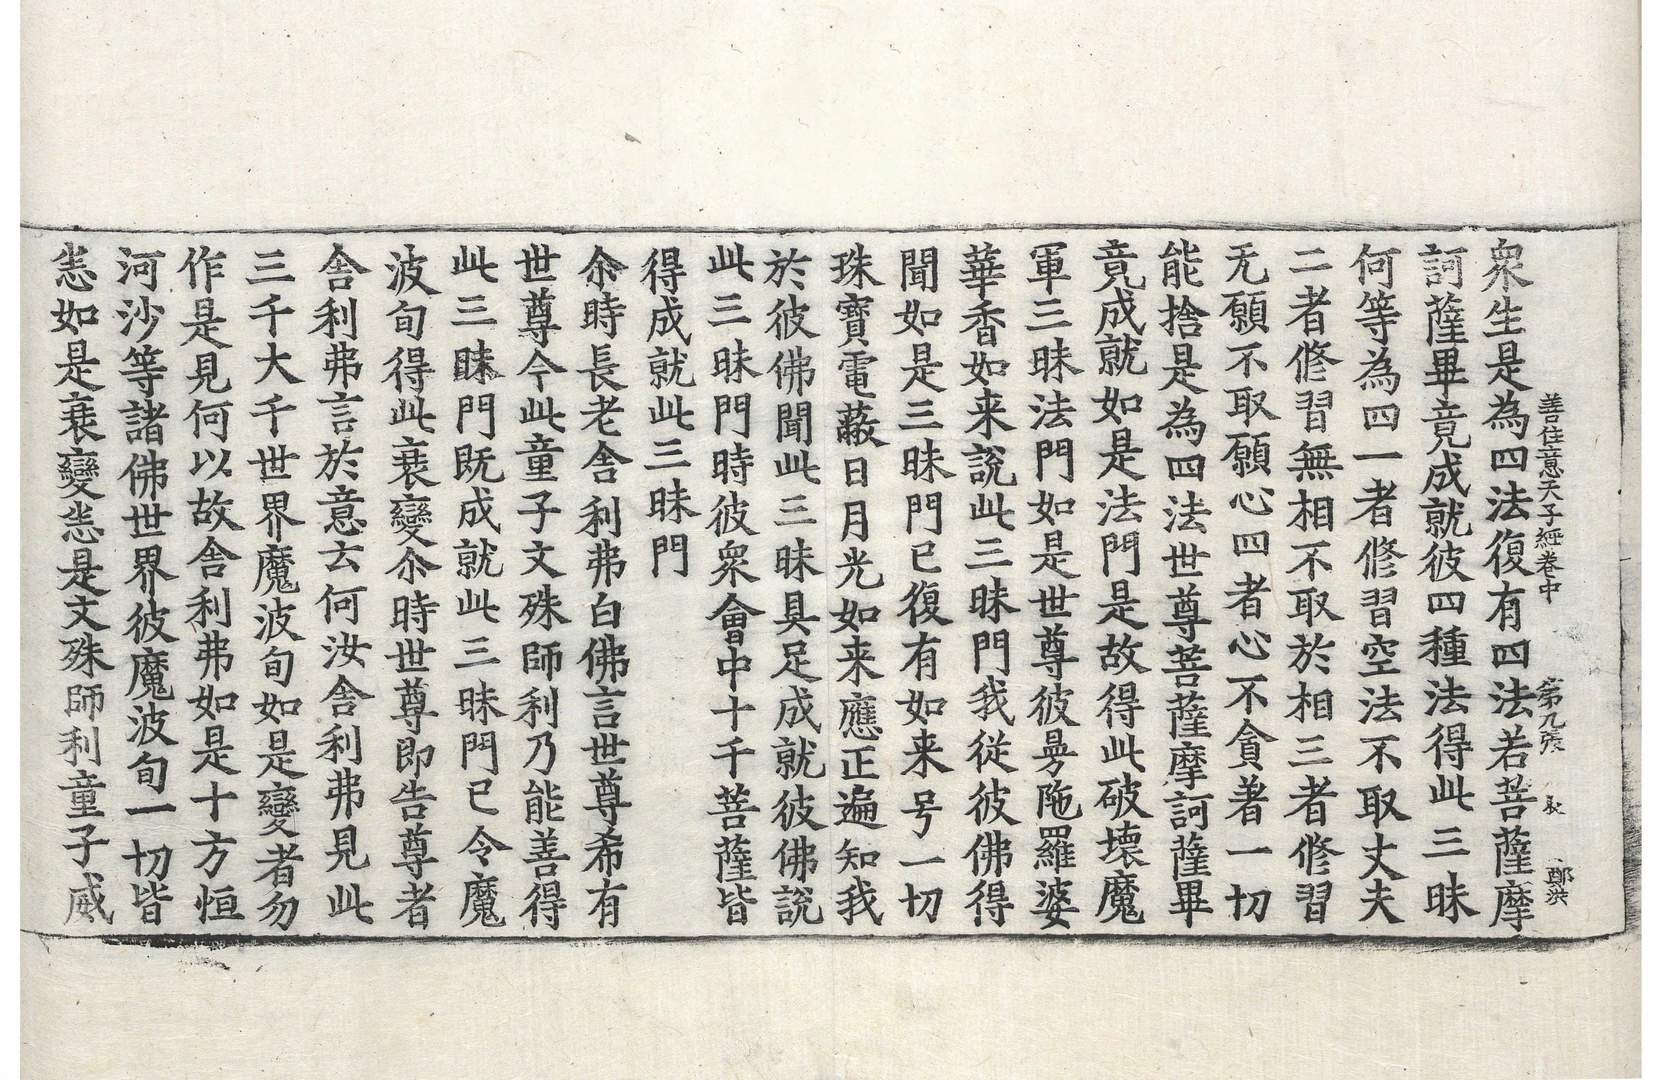 善住意天子經卷中　第九張　長　鄭洪
衆生是為四法復有四法若菩薩摩
訶薩畢竟成就彼四種法得此三昧
何等為四一者修習空法不取丈夫
二者修習無相不取於相三者修習
无願不取願心四者心不貪著一切
能捨是為四法世尊菩薩摩訶薩畢
竟成就如是法門是故得此破壞魔
軍三昧法門如是世尊彼曼陁羅婆
華香如来說此三昧門我從彼佛得
聞如是三昧門已復有如来号一切
珠寶電蔽日月光如来應正遍知我
於彼佛聞此三昧具足成就彼佛說
此三昧門時彼衆會中十千菩薩皆
得成就此三昧門
尒時長老舍利弗白佛言世尊希有
世尊今此童子文殊師利乃能善得
此三昧門既成就此三昧門已令魔
波旬得此衰變尒時世尊即告尊者
舍利弗言於意云何汝舍利弗見此
三千大千世界魔波旬如是變者勿
作是見何以故舍利弗如是十方恒
河沙等諸佛世界彼魔波旬一切皆
悉如是衰變悉是文殊師利童子威